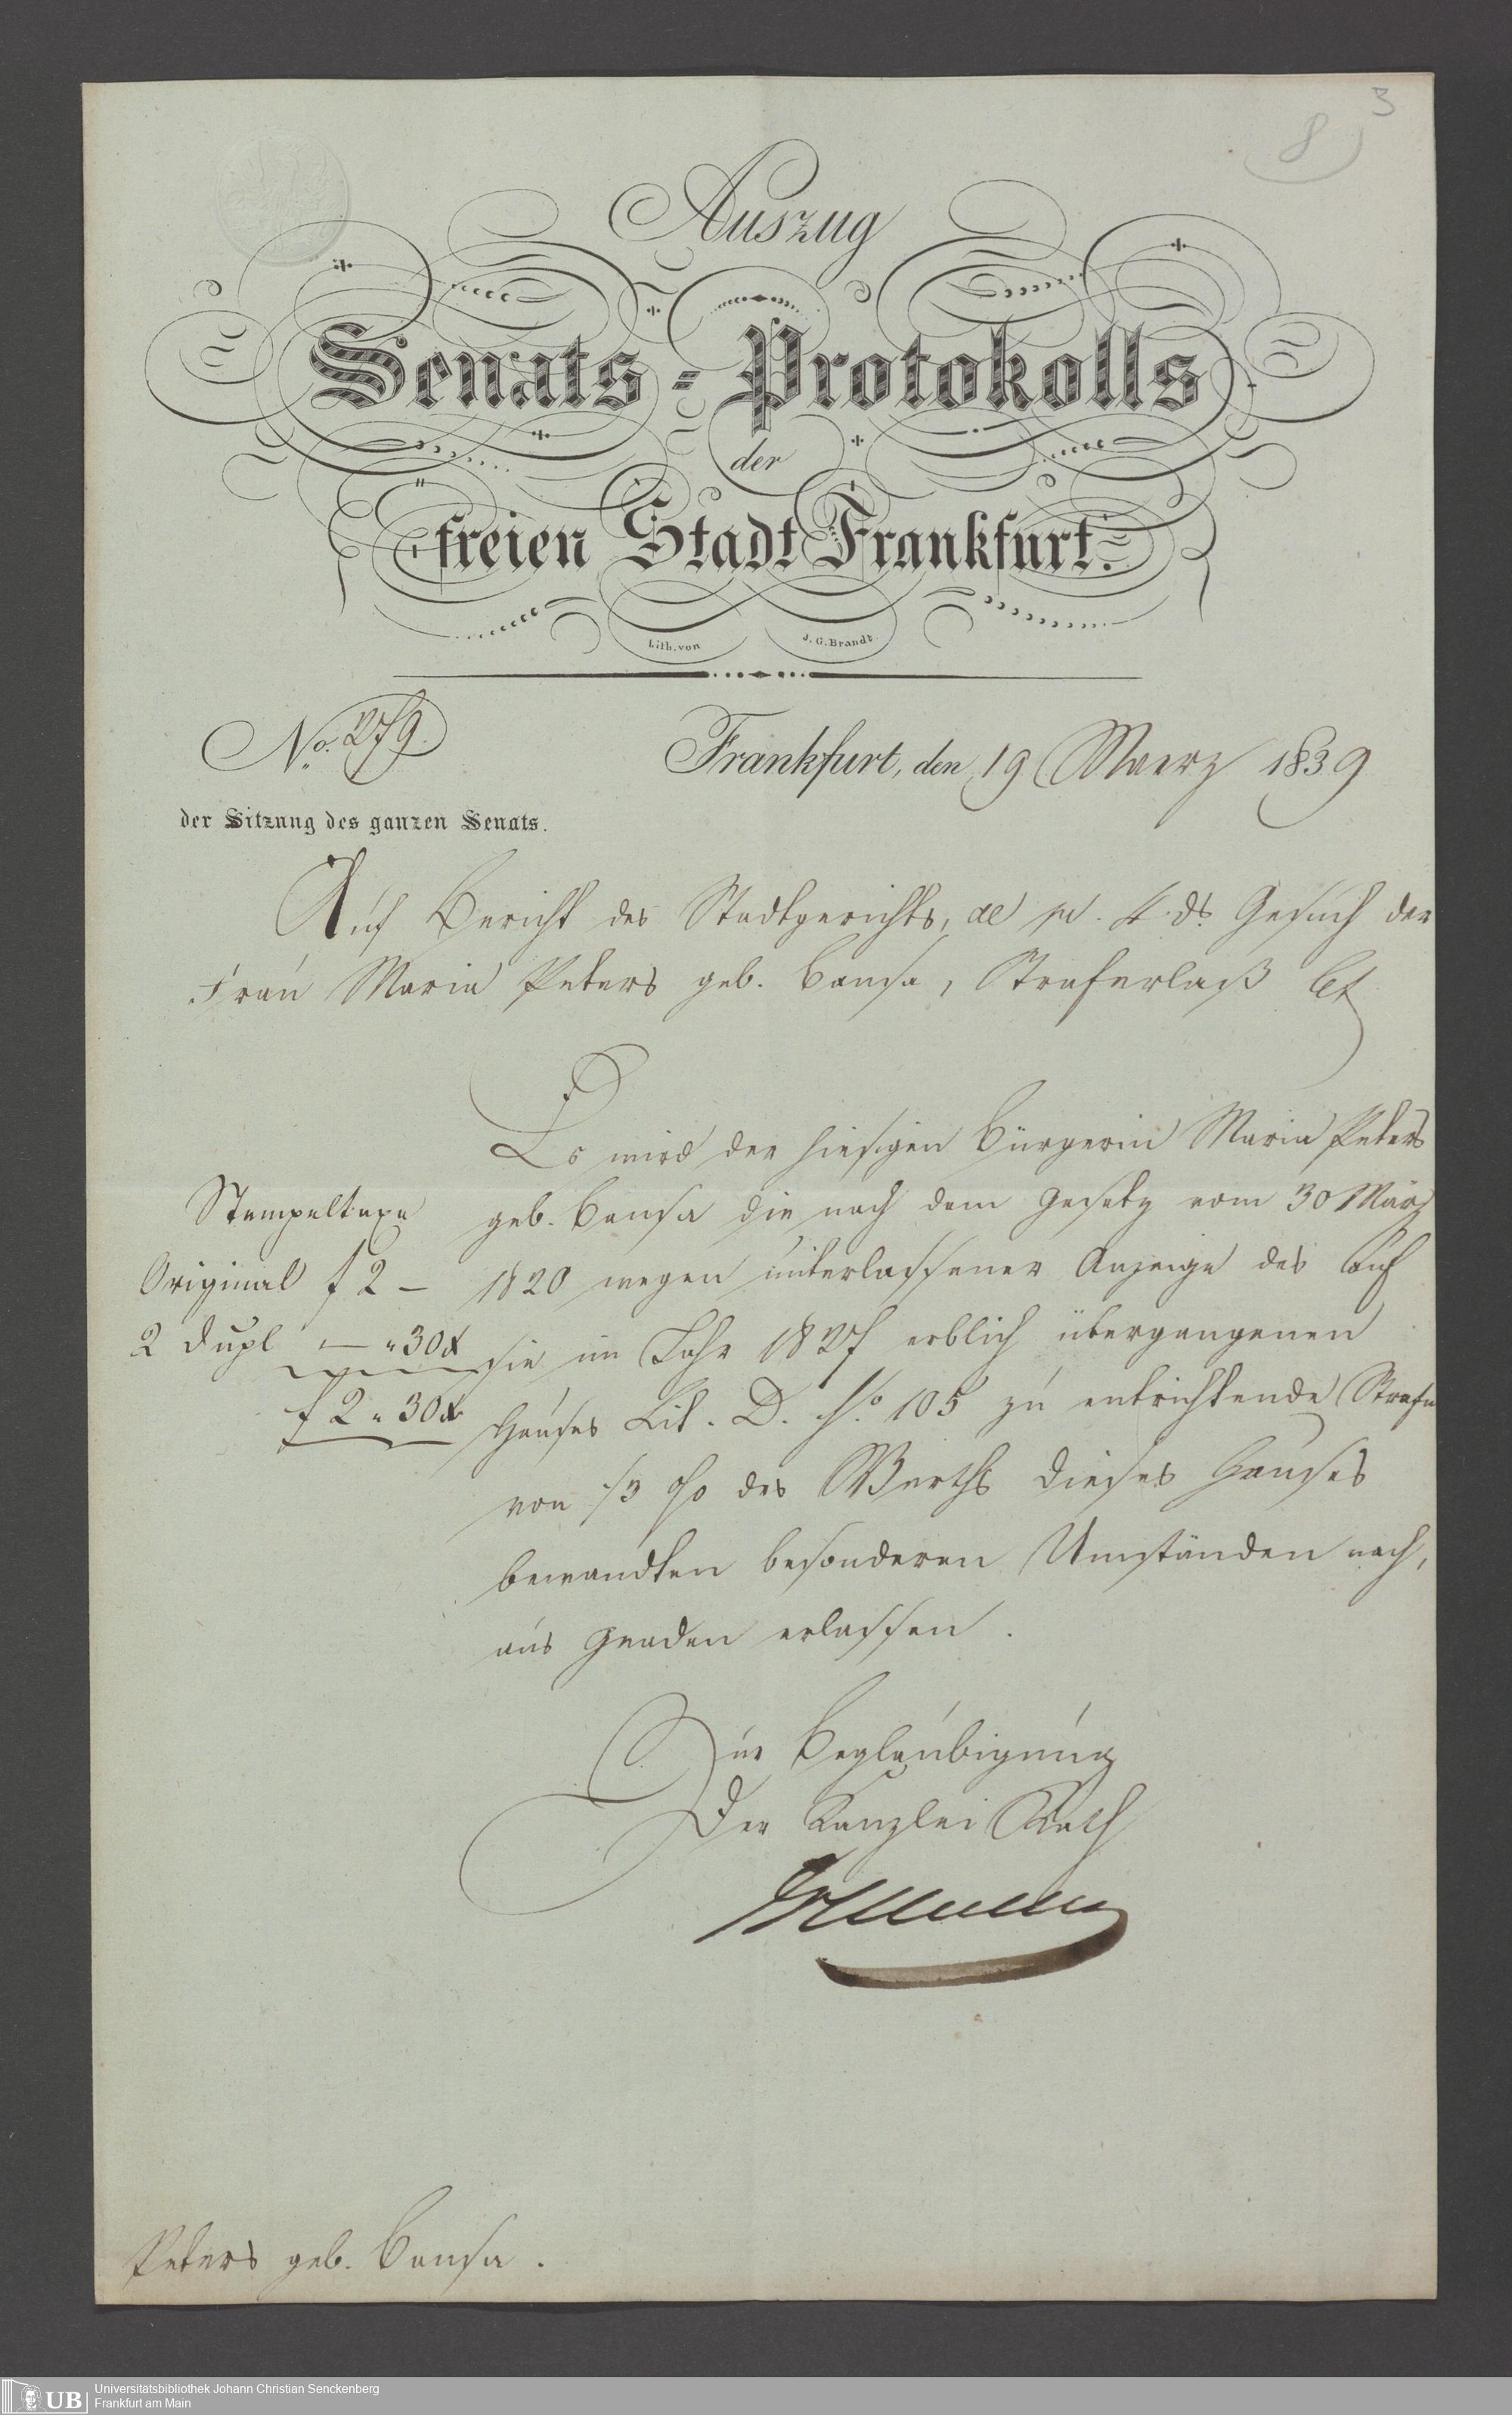 3
8
Auszug
Senats-Protokolls
der
freien Stadt Frankfurt.
Lith. von J. G. Brandt
No. 279.
Frankfurt, den 19 Maerz 1839
der Sitzung des ganzen Senats.
Auf Bericht des Stadtgerichts, ds. Gesuch der
Frau Maria Peters geb. Bansa, Straferlaß bt
Es wird der hiesigen Bürgerin Maria Peters
geb. Bansa die nach dem Gesetz vom 30 März
1820 wegen unterlassener Anzeige des auf
sie im Jahr 1827 erblich übergangenen
Hauses Lit. D. No. 105 zu entrichtende Strafe
von des Werths dieses Hauses
bewandten besonderen Umständen nach,
aus Gnaden erlassen.
Stempeltaxe
Original f 2 –
2 Dupl — " 30 x
f 2 " 30 x
Zur Beglaubigung
Der Kanzlei Rath
Peters geb. Bansa.
UB Universitätsbibliothek Johann Christian Senckenberg
Frankfurt am Main